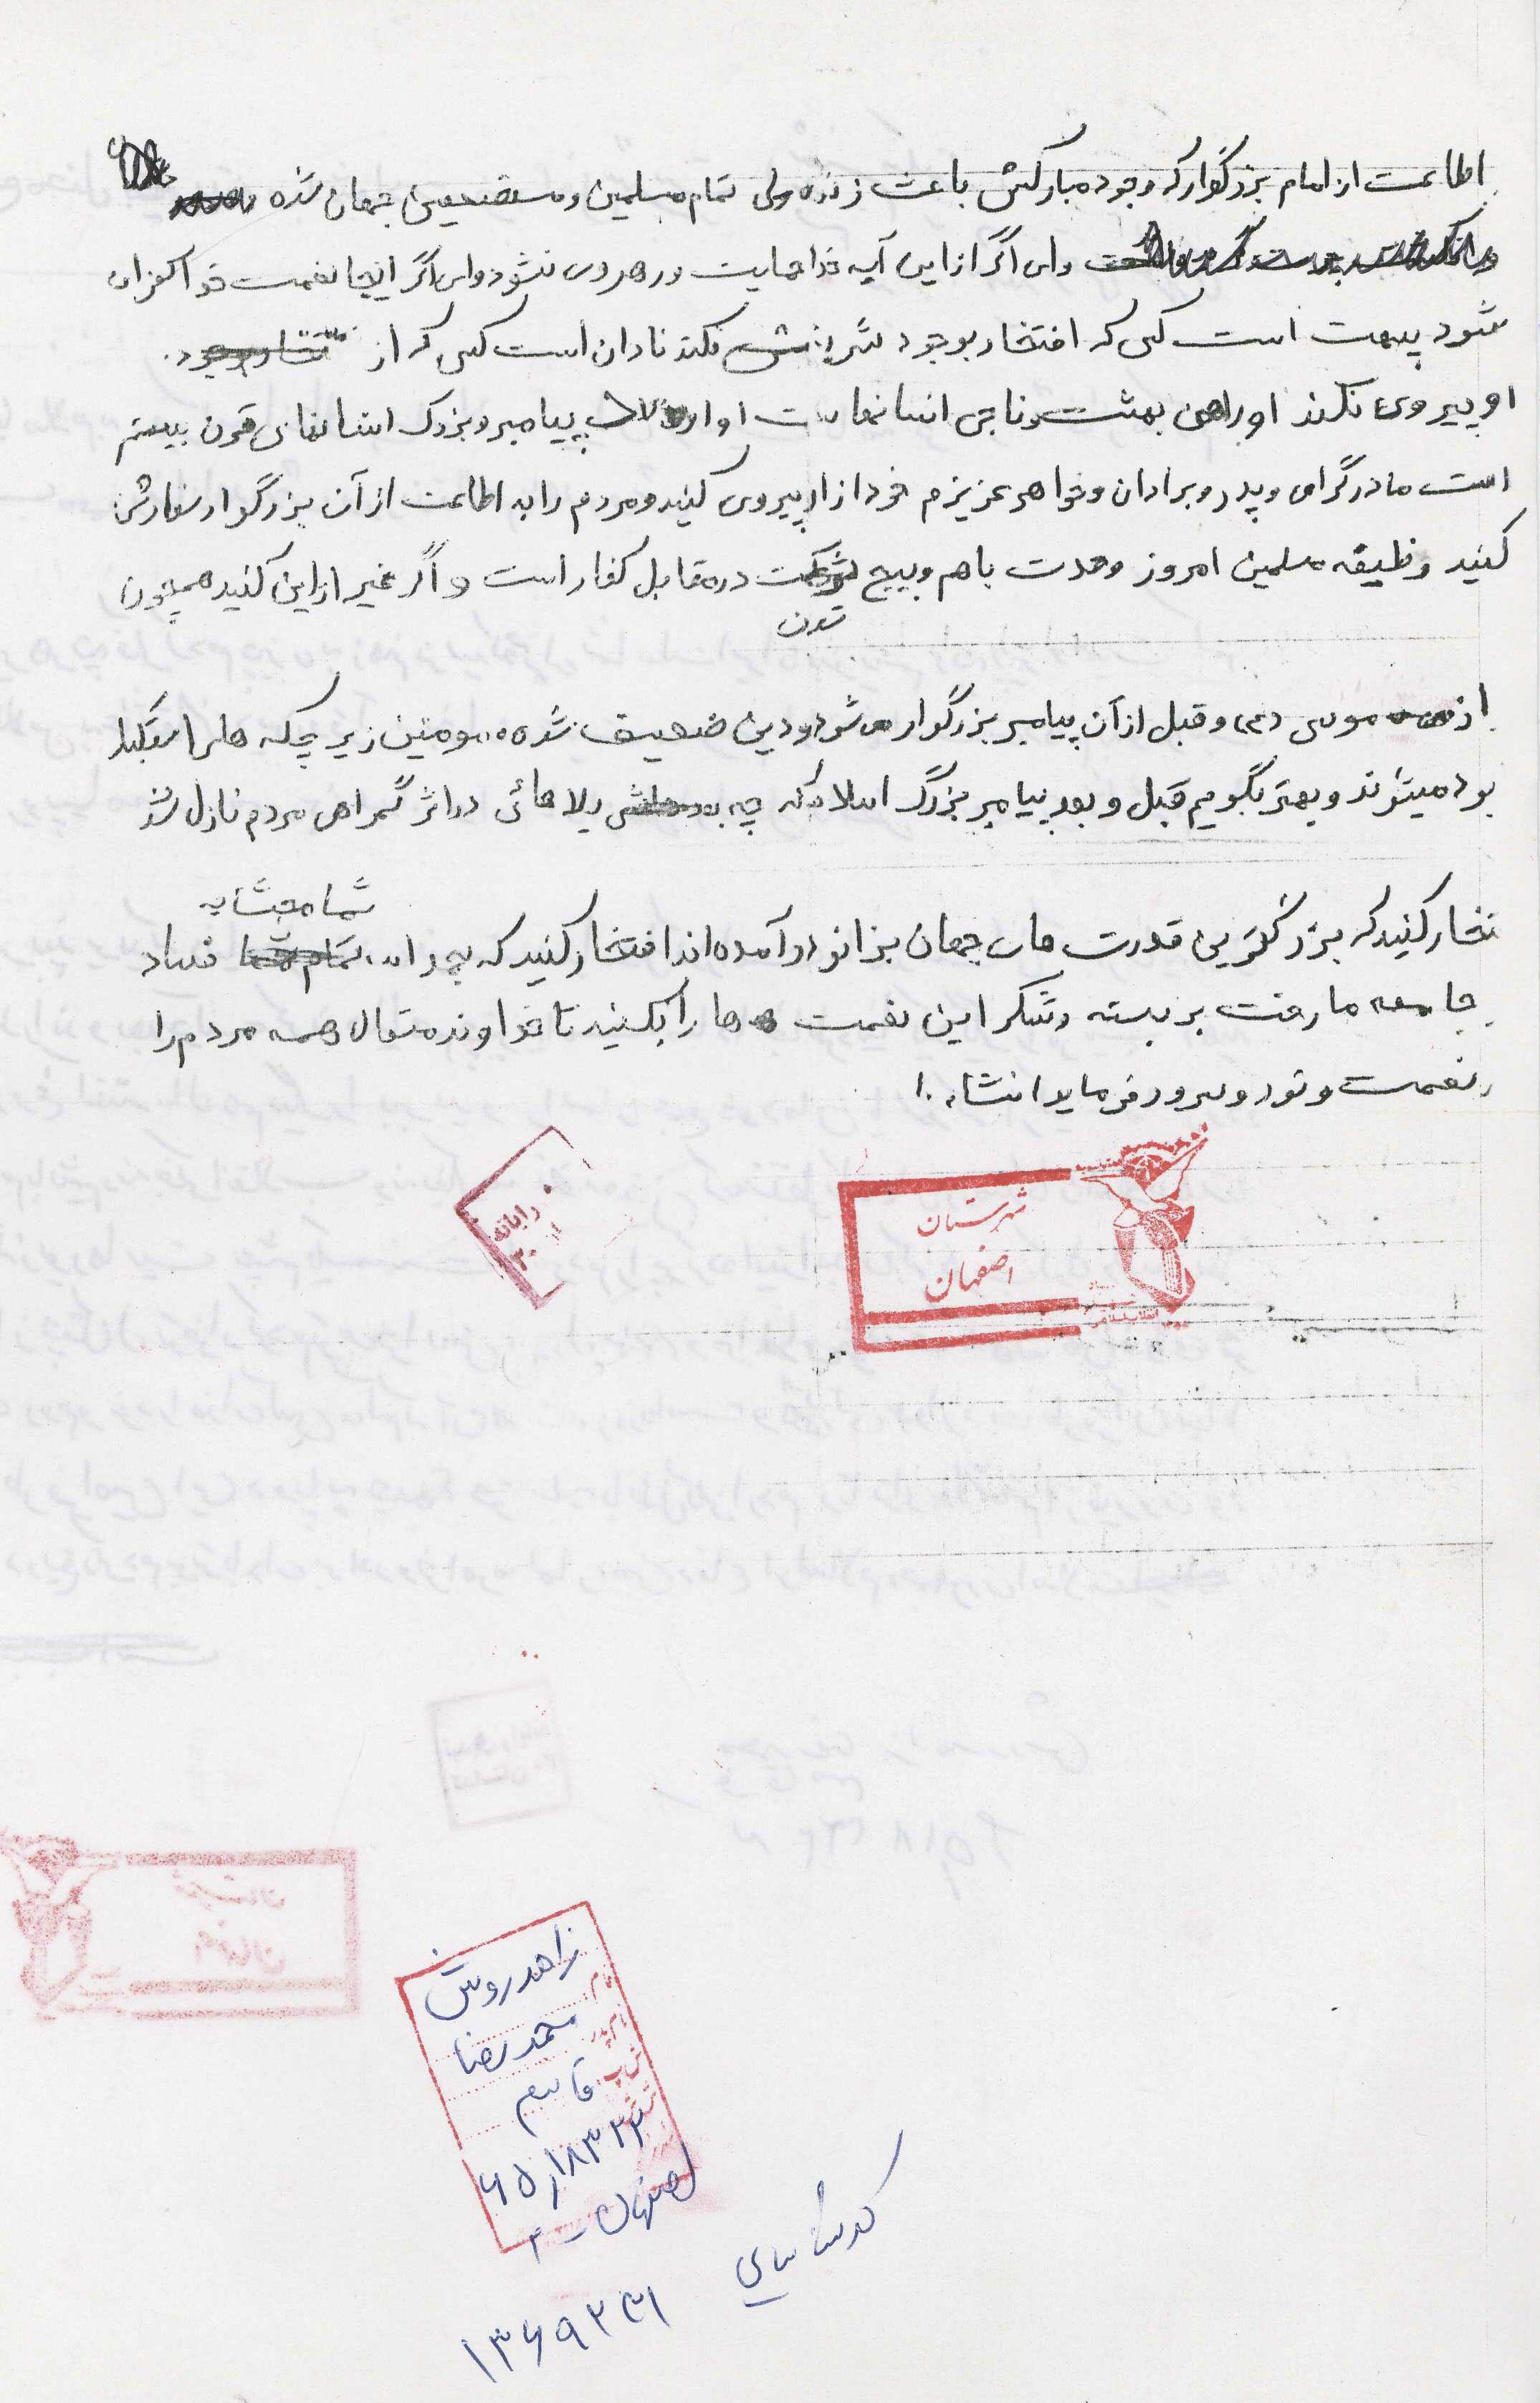 اطاعت از امام بزرگوار که وجود مبارکش باعث زنده ولی تمام مسلمین و مستضعفین جهان شده
وای اگر از این آیه خدا حمایت و رهروی نشود وای اگر اینجا نعمت خدا کفران
شود پست است کسی که افتخار بوجود شریفش نکند نادان است کسی که از
او پیروی نکند او راهی بهشت و ناجی انسانهاست او از پیامبر و بزرگ انسانهای قرن بیستم
است مادر گرامی و پدر و برادان و خواهر عزیزم خود از او پیروی کنید و مردم را به اطاعت از آن بزرگوار سفارش
کنید وظیفه مسلمین امروز وحدت با هم و بسیج شدن در مقابل کفار است و اگر غیر از این کنید همچون
از موسی (ع) و قبل از آن پیامبر بزرگوار می شود و دین ضعیف شده و مومنین زیر چکه های استکبار
بود میشوند و بهتر بگویم قبل و بعد پیامبر بزرگ اسلام که چه بلا هائی در اثر گمراهی مردم نازل شد
تخار کنید که بزرگترین قدرت های جهان بزانو درآمده اند افتخار کنید که بحمد الله فساد
جامعه ما رخت بر بسته و شکر این نعمت ها را بکنید تا خداوند متعال همه مردم را
نعمت و نور و سرور فرماید انشاء ا
شهرستان
اصفهان
رایانه
زاهد روش
محمد رضا
قاسم
۱۸۳۲۲ار۶۵
اصفهان - ۲
کد شناسایی
۱۳۶۹۲۳۱